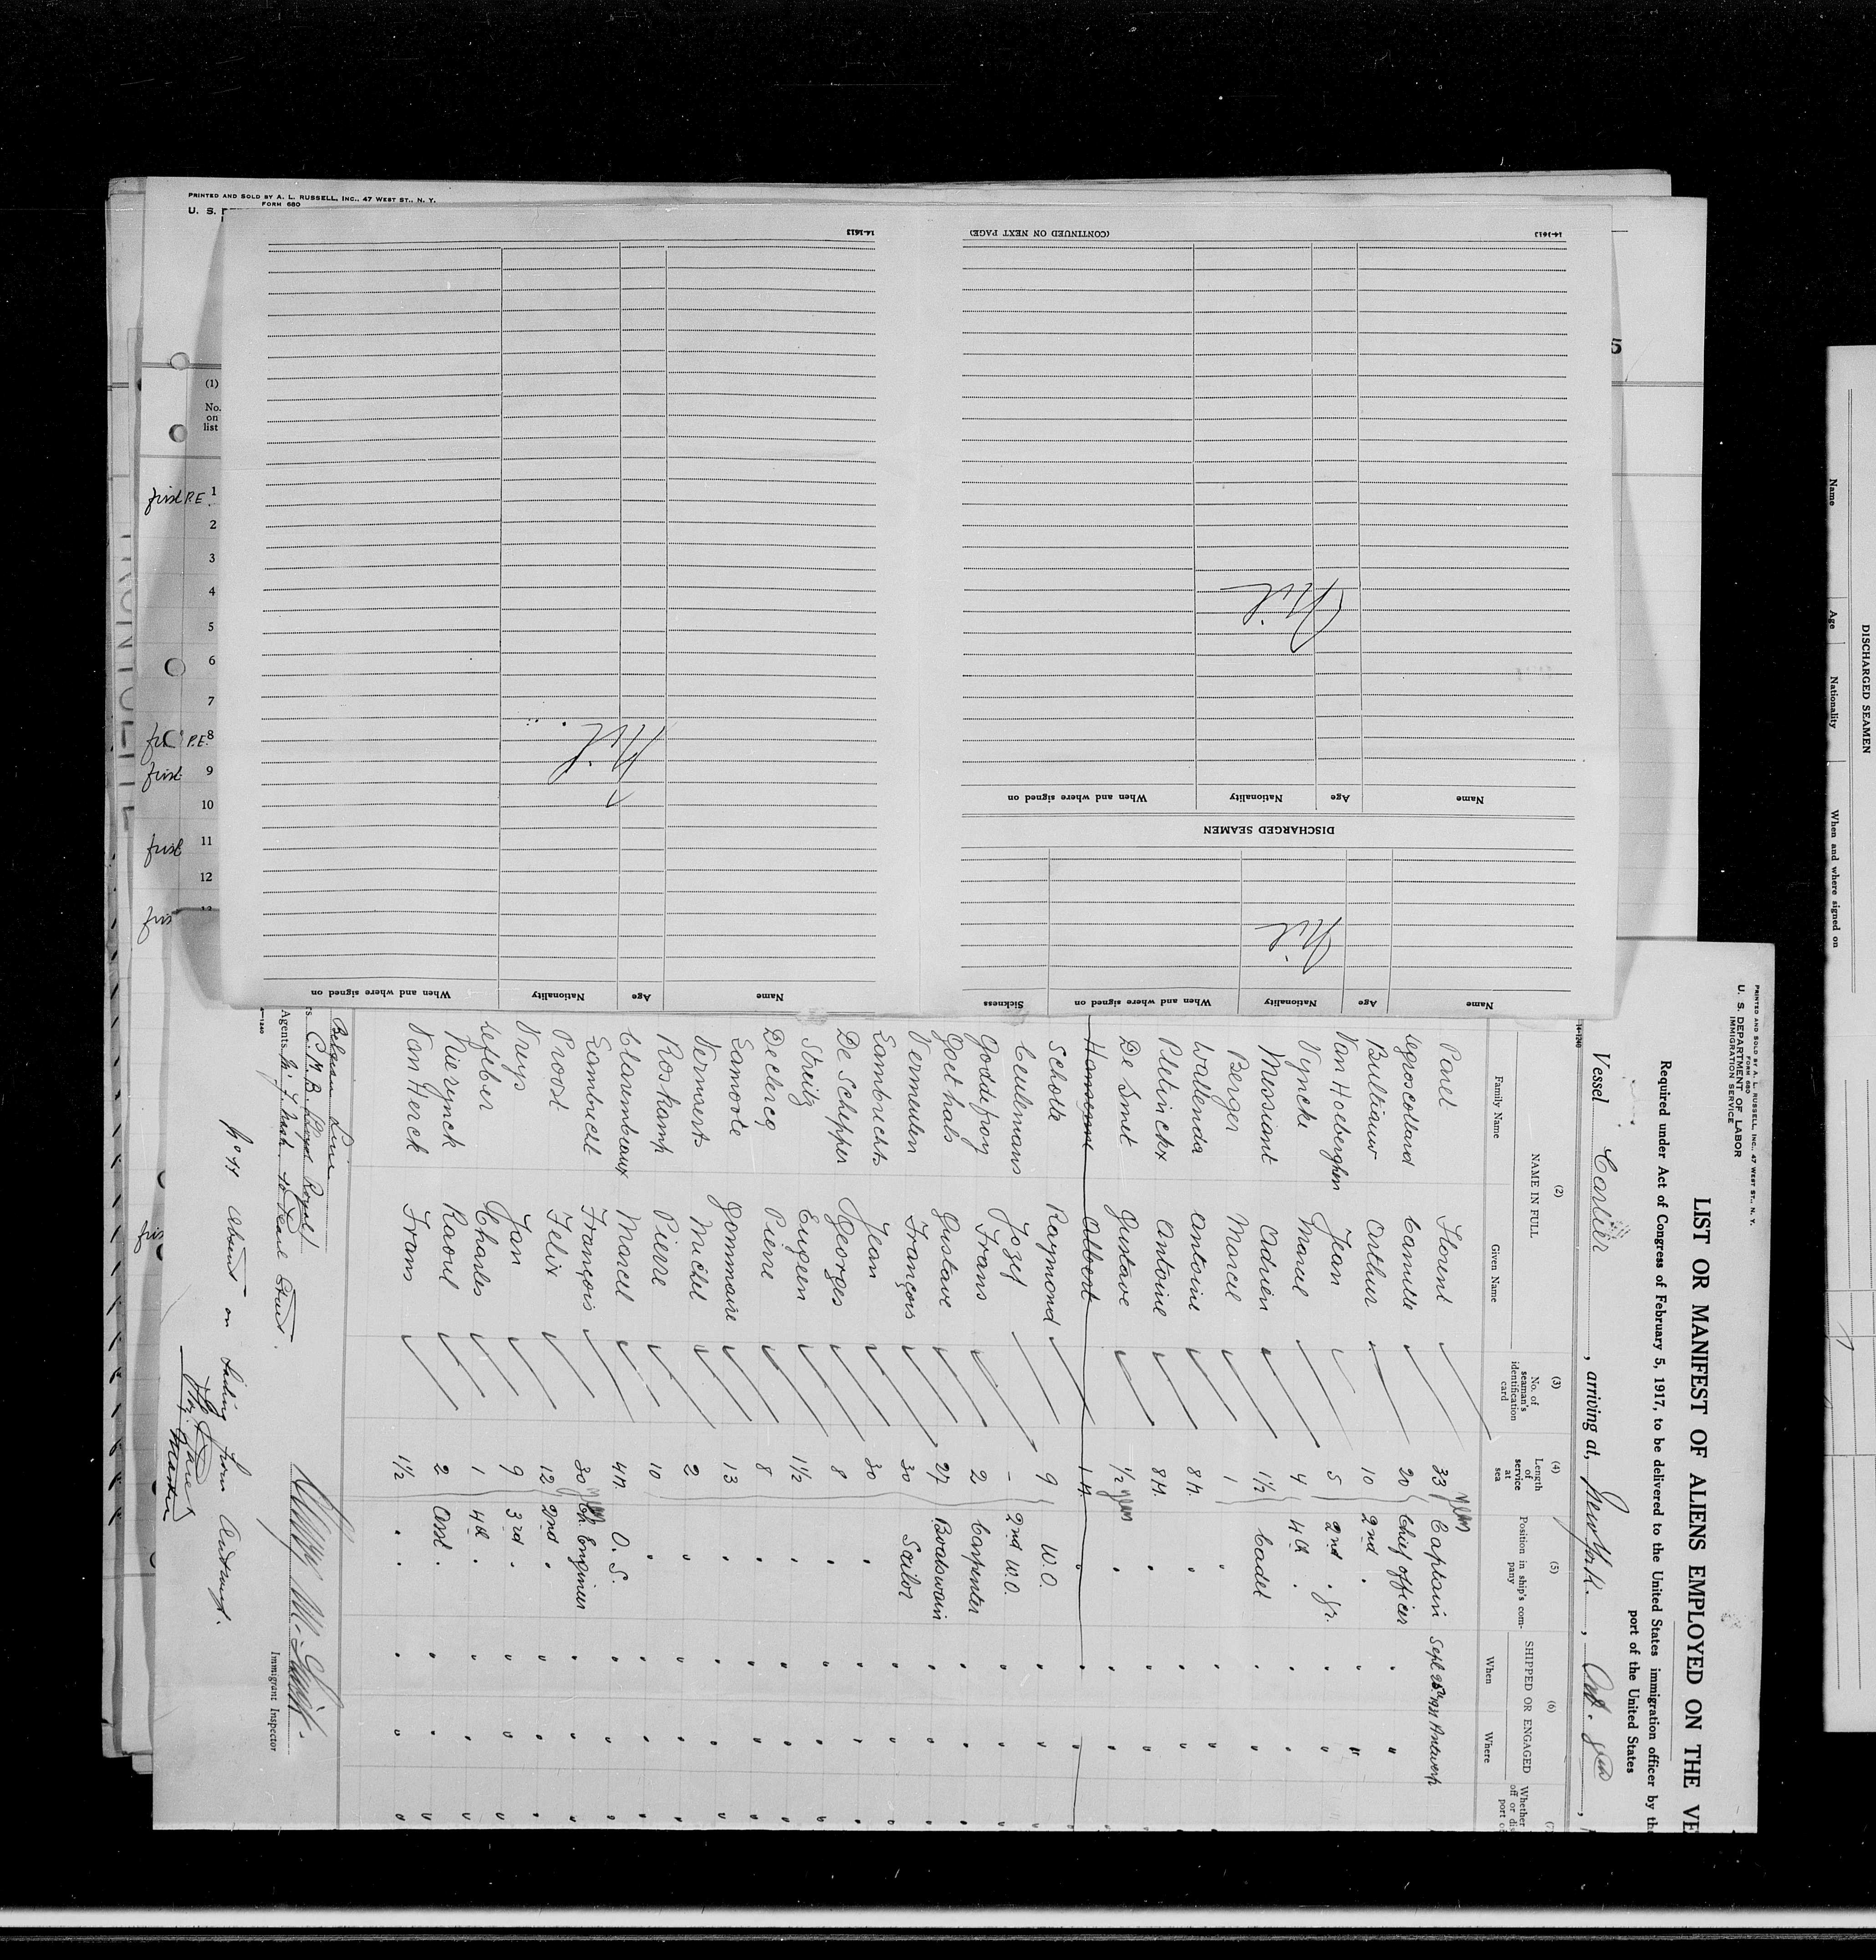 PRINTED AND SOLD BY A. L. RUSSELL, INC., 47 WEST ST., N. Y.
FORM 680
U. S.
5
(1)
No.
on
list
first P.E. 1
2
3
4
5
6
7
P.E. 8
first 9
10
first 11
12
14-1613
Nil
When and where signed on Nationality Age Name
14-1613
(CONTINUED ON NEXT PAGE)
Nil
When and where signed on Nationality Age Name
DISCHARGED SEAMEN
Nil
Sickness When and where signed on Nationality Age Name
PRINTED AND SOLD BY A. L. RUSSELL, INC., 47 WEST ST., N. Y.
FORM 680
U. S. DEPARTMENT OF LABOR
IMMIGRATION SERVICE
LIST OR MANIFEST OF ALIENS EMPLOYED ON THE VE
Required under Act of Congress of February 5, 1917, to be delivered to the United States immigration officer by the
port of the United States
Vessel Carlier, arriving at New York, Oct.
14-1240
(2) (3) (4) (5) (6) (7)
NAME IN FULL No. of seaman's identification card Length of service at sea Position in ship's company SHIPPED OR ENGAGED Whether
Family Name Given Name When Where
Panel Florent 33 years Captain Sept 25th 1931 Antwerp
Legroscollard Camille 20 Chief officer " "
Bulliauw Arthur 10 2nd " " "
Van Hoeberghen Jean 5 2nd " Jr. " "
Vyncke Marcel 4 4th " " "
Messiant Adrien 1½ Cadet " "
Berger Marcel 1 " " "
Wallenda Antoine 8 M. " " "
Pletinckx Antoine 8 M. " " "
De Smet Gustave ½ year " " "
Hanssens Albert 1 M. " " "
Schotte Raymond 9 W.O. " "
Ceulemans Jozef - 2nd W.O. " "
Goddefroy Frans 2 Carpenter " "
Goethals Gustave 27 Boatswain " "
Vermeulen François 30 Sailor " "
Lambrechts Jean 30 " " "
De Schepper Georges 8 " " "
Streitz Eugeen 1½ " " "
Declercq Pierre 8 " " "
Lamoote Gommaire 13 " " "
Vermeerts Michel 2 " " "
Roskamp Pierre 10 " " "
Clarembeaux Marcel 4 M. O. S. " "
Lambrecht François 30 years Ch. Engineer " "
Proost Felix 12 2nd " " "
Truys Jan 9 3rd " " "
Lefeber Charles 1 4th " " "
Nierynck Raoul 2 Asst. " " "
Van Herck Frans 1½ " " " "
Belgian Line
C.M.B. Lloyd Royal
Agents
Immigrant Inspector
No 11 Absent on sailing from Antwerp.
Master
Name Age Nationality When and where signed on
DISCHARGED SEAMEN